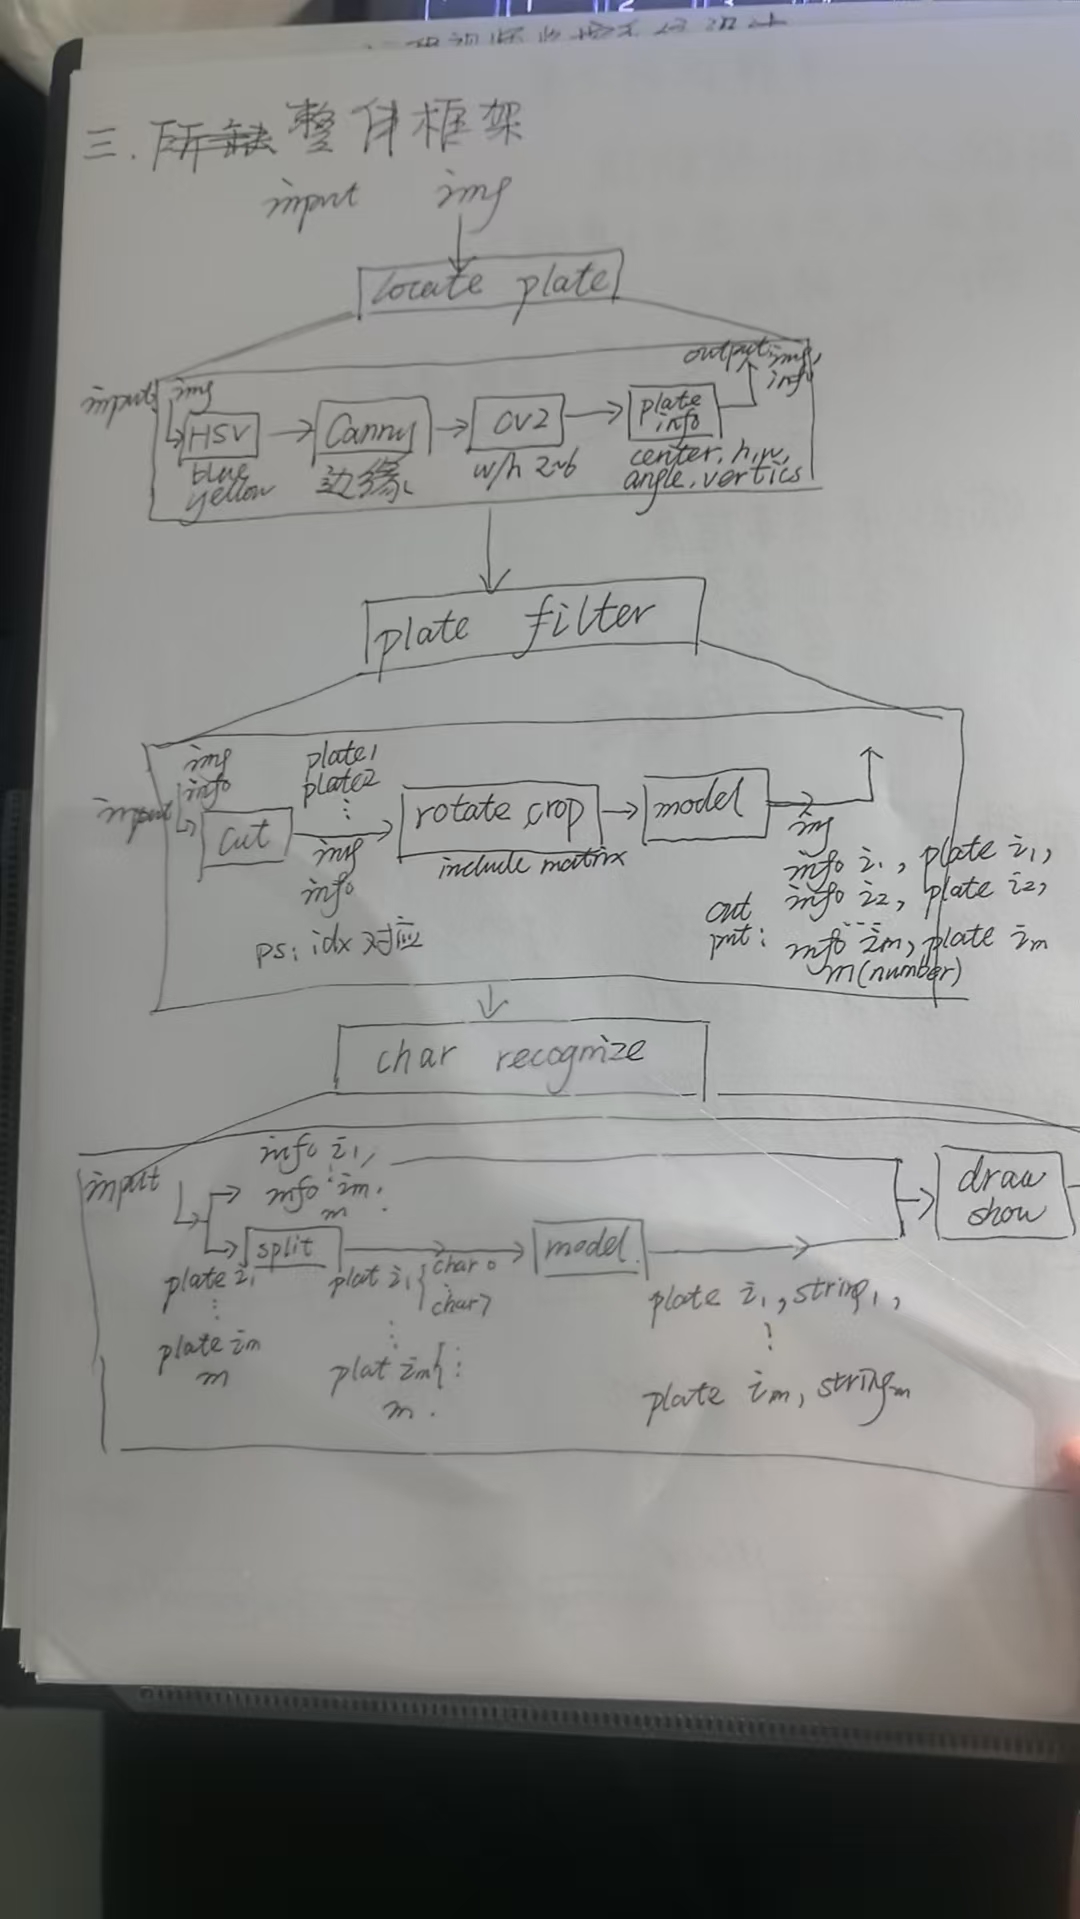 三. 整体框架
input img
locate plate
output: img,
info
input img
HSV
blue
yellow
Canny
边缘
CV2
w/h 2~6
plate
info
center, h, w,
angle, vertics
plate filter
input
img
info
cut
plate1
plate2
⋮
img
info
rotate crop
include matrix
model
ps: idx 对应
out
put:
img
info i1, plate i1,
info i2, plate i2,
...
info im, plate im
m(number)
char recognize
input
info i1,
⋮
info im.
m
split
plate i1
⋮
plate im
m
plat i1{ char0
⋮
char7
⋮
plat im{ ⋮
m.
model.
plate i1, string1,
⋮
plate im, stringm
draw
show